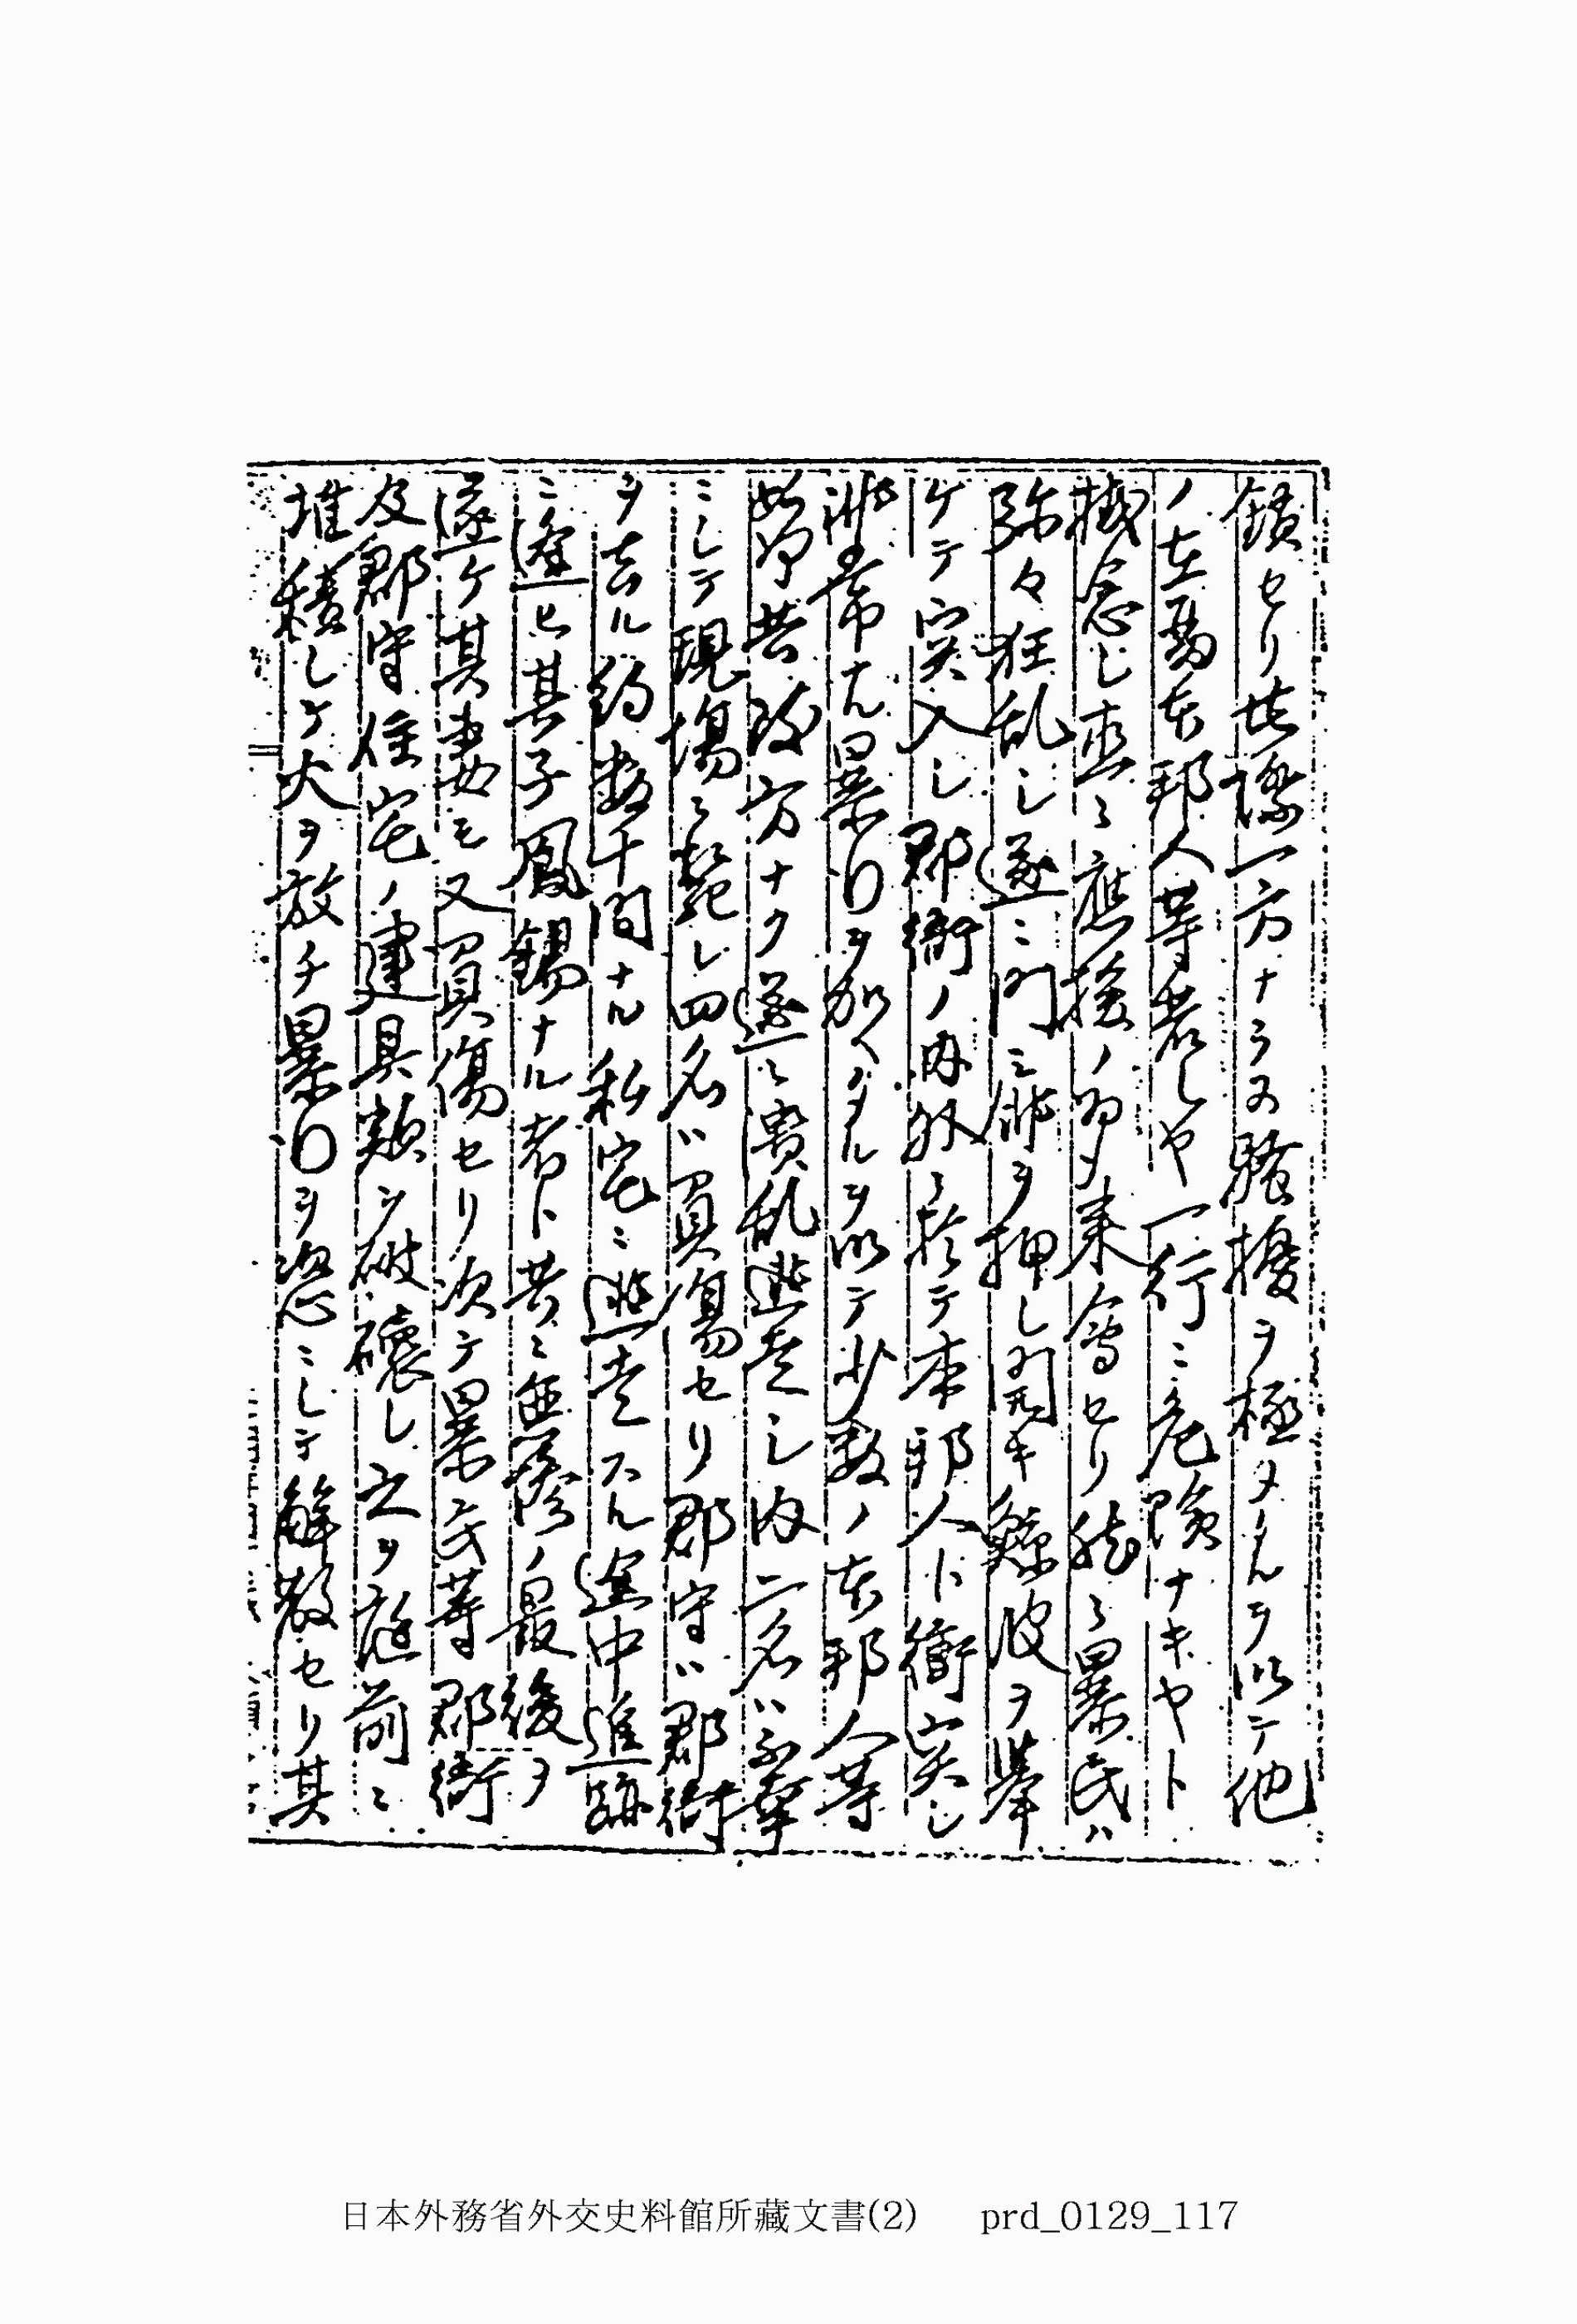 鎖セリ其際一方ナラス騷擾ヲ極メタルヲ以テ他
ノ在留本邦人等若シヤ一行ニ危険ナキヤト
掛念シ直ニ應援ノ為メ来會セリ然ニ暴民ハ
弥々狂乱シ遂ニ門扉ヲ押シ開キ鯨波ヲ挙
ケテ突入シ郡衙ノ内外ニ於テ本邦人ト衝突シ
非常ナル暴行ヲ加ヘタルヲ以テ少数ノ本邦人等
如何共致方ナク遂ニ潰乱逃走シ内二名ハ不幸
ニシテ現場ニ斃レ四名ハ負傷セリ郡守ハ郡衙
ヲ去ル約数千間ナル私宅ニ逃走スル途中追跡
ニ逢ヒ其子鳳錫ナル者ト共ニ無惨ノ最後ヲ
遂ケ其妻モ又負傷セリ次テ暴民等郡衙
及郡守住宅ノ建具類ヲ破壊シ之ヲ庭前ニ
堆積シテ火ヲ放チ暴行ヲ恣ニシテ解散セリ其
日本外務省外交史料館所藏文書(2) prd_0129_117